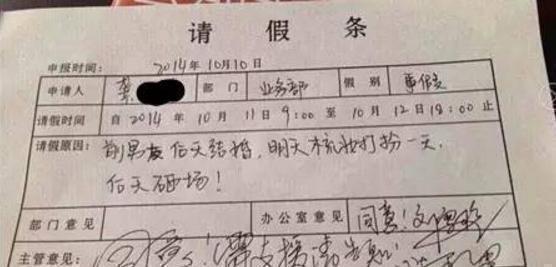 请假条
申报时间: 2014年10月10日
申请人 部门 业务部 假别 事假
请假时间 自2014年10月11日9:00至10月12日18:00止
请假原因: 前男友后天结婚，明天梳妆打扮一天，
后天砸场!
部门意见 办公室意见 同意!
主管意见: